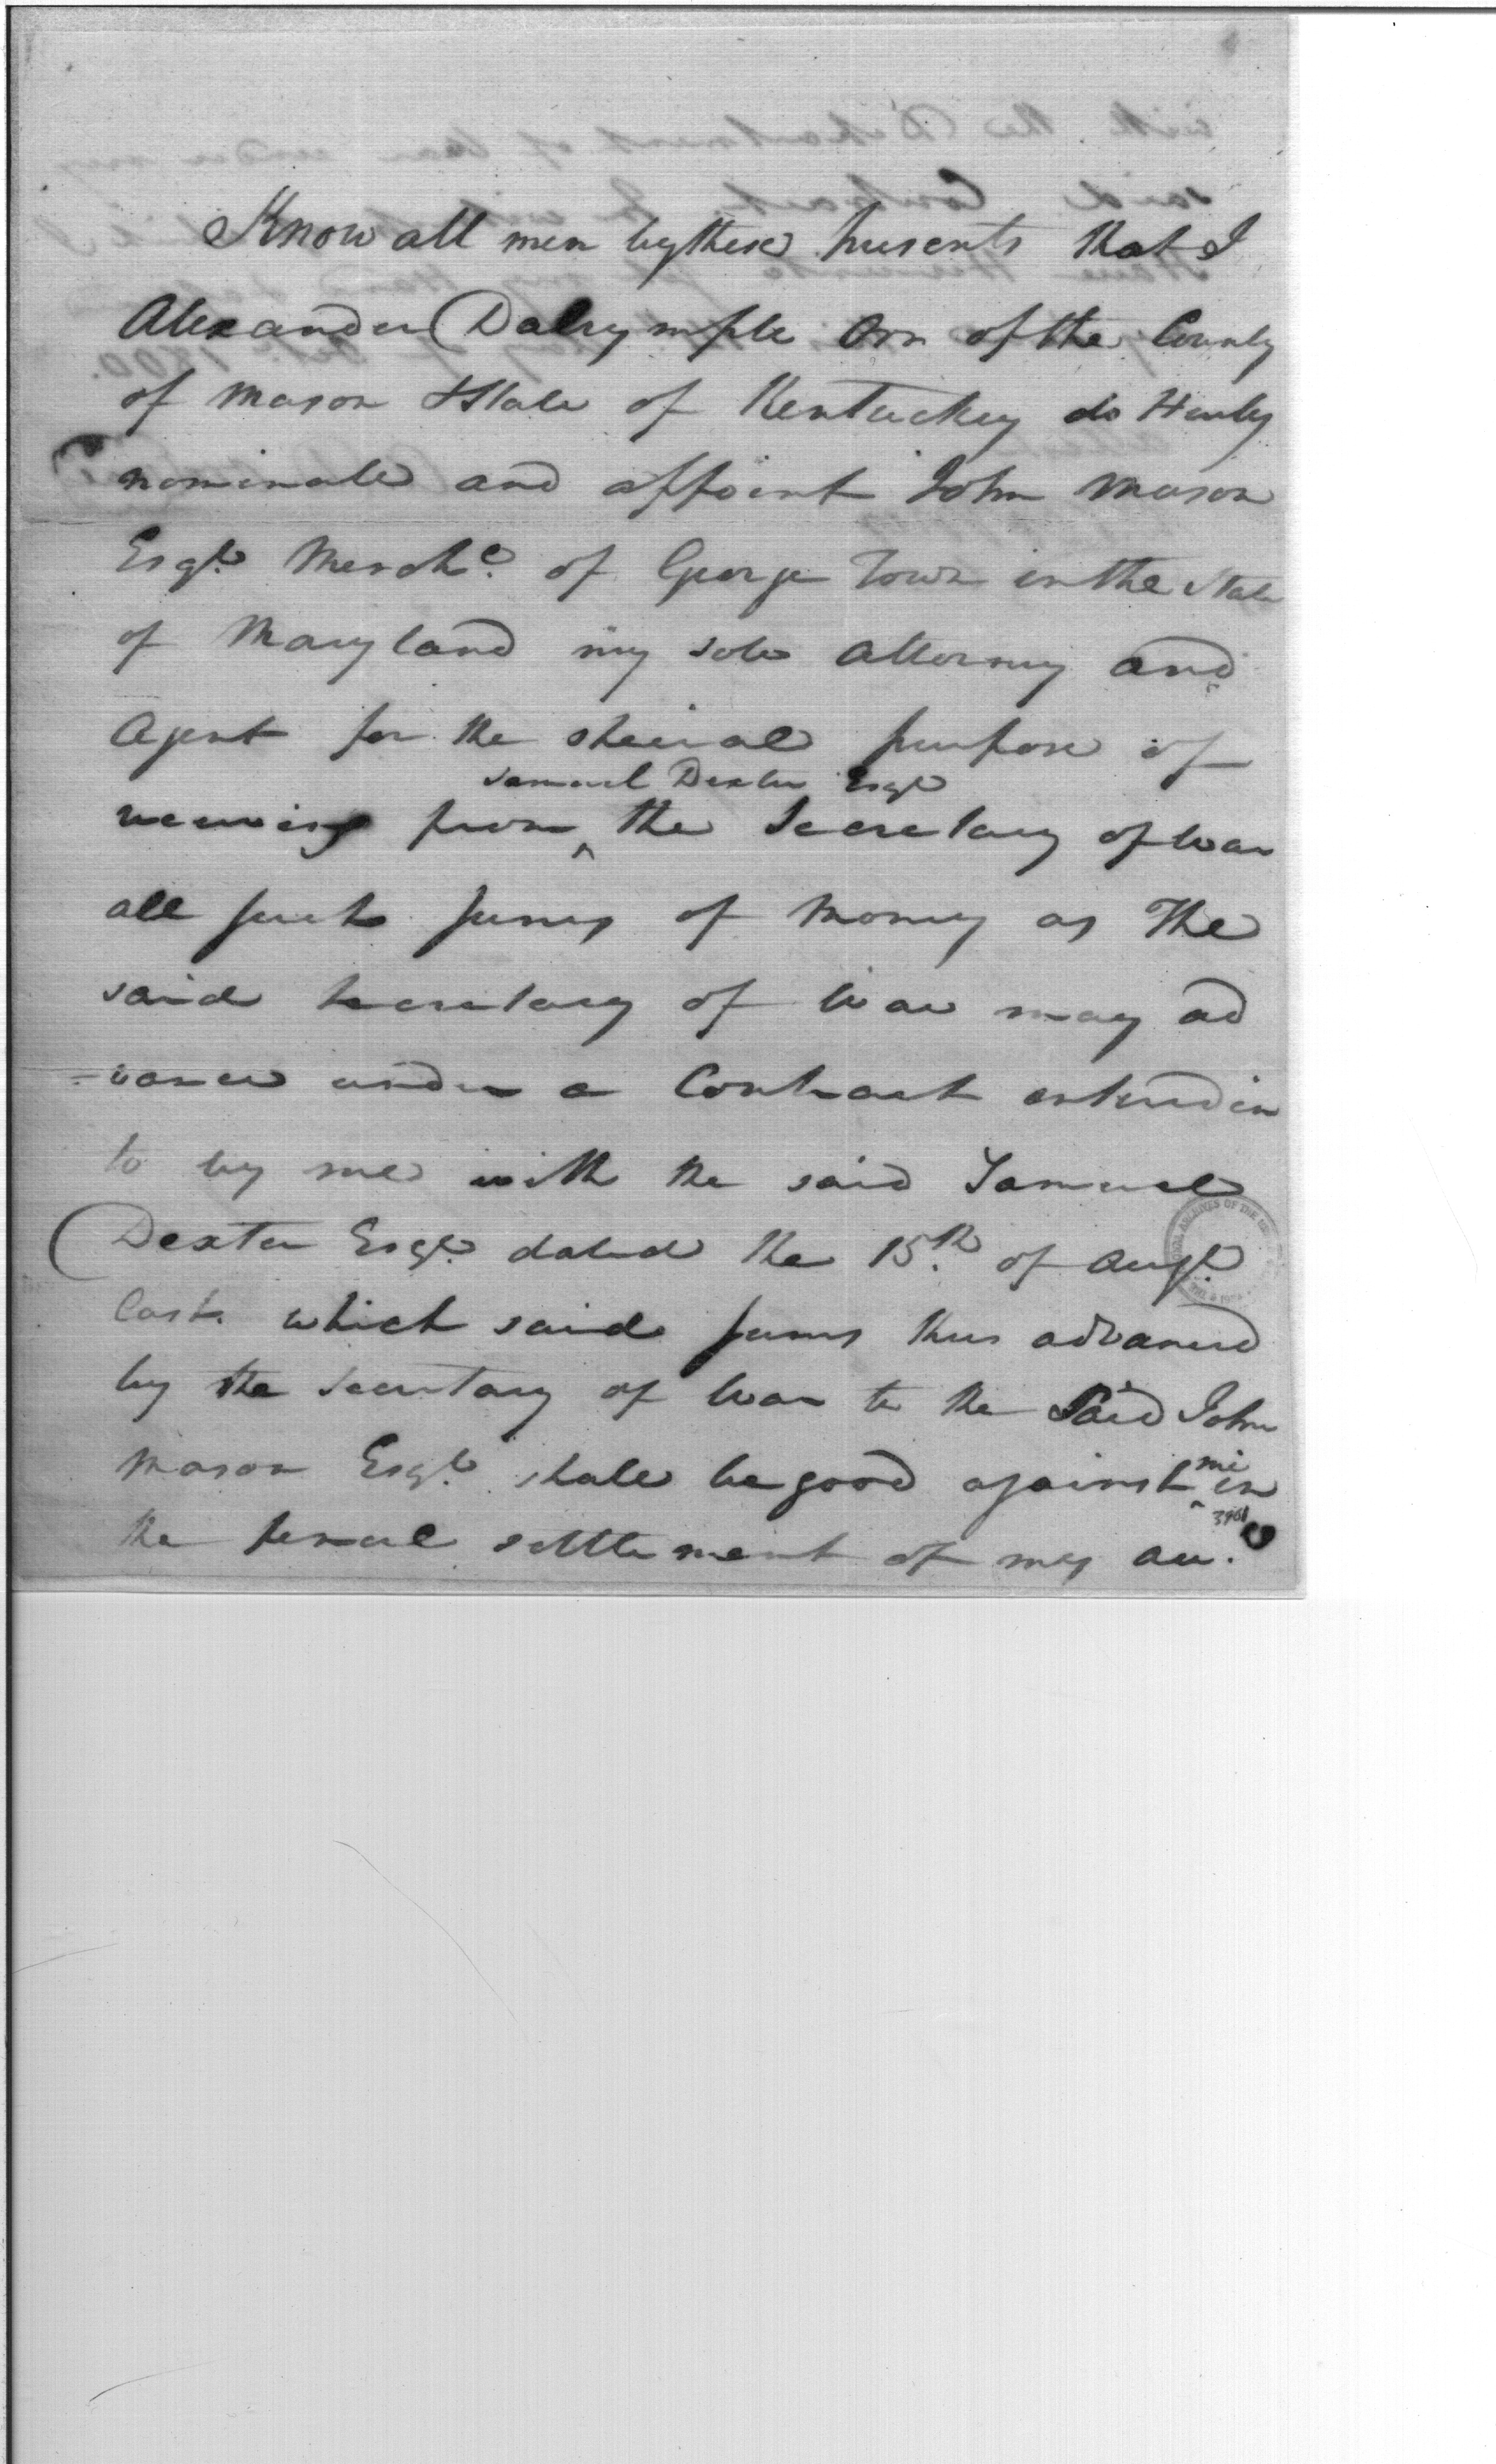 Know all men by these presents that I
Alexander Dalrymple Orr of the County
of Mason & State of Kentuckey do Hereby
nominate and appoint John Mason
Esqr. Mercht. of George Town in the State
of Maryland my sole Attorney and
Agent for the special purpose of
Samuel Dexter Esqr
receiving from ^ the Secretary of War
all such sums of Money as The
said Secretary of War may ad
-vance under a Contract entered in
to by me with the said Samuel
Dexter Esqr. dated the 15th. of Augt.
last. which said sums thus advanced
by the Secretary of War to the Said John
me
Mason Esqr. shall be good against ^ in
3961
the final settlement of my